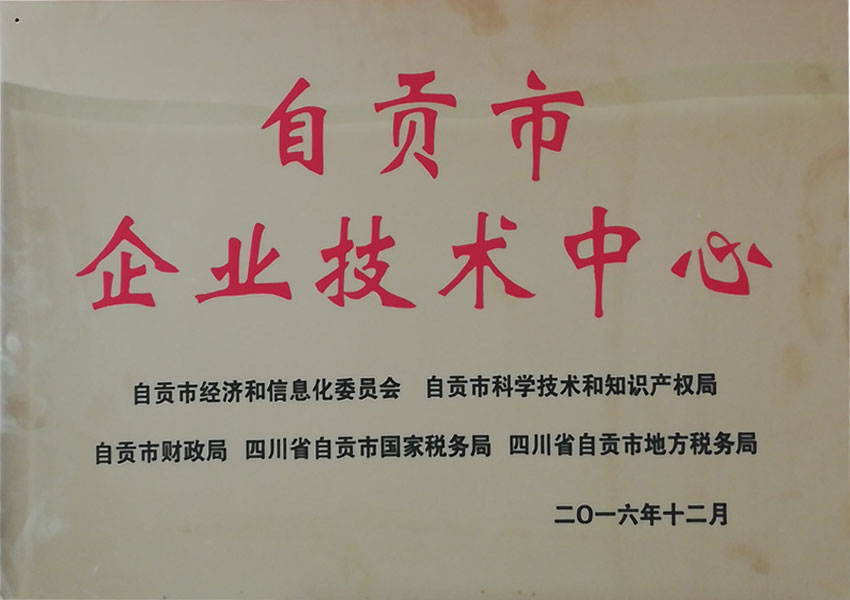 自贡市
企业技术中心
自贡市经济和信息化委员会 自贡市科学技术和知识产权局
自贡市财政局 四川省自贡市国家税务局 四川省自贡市地方税务局
二〇一六年十二月